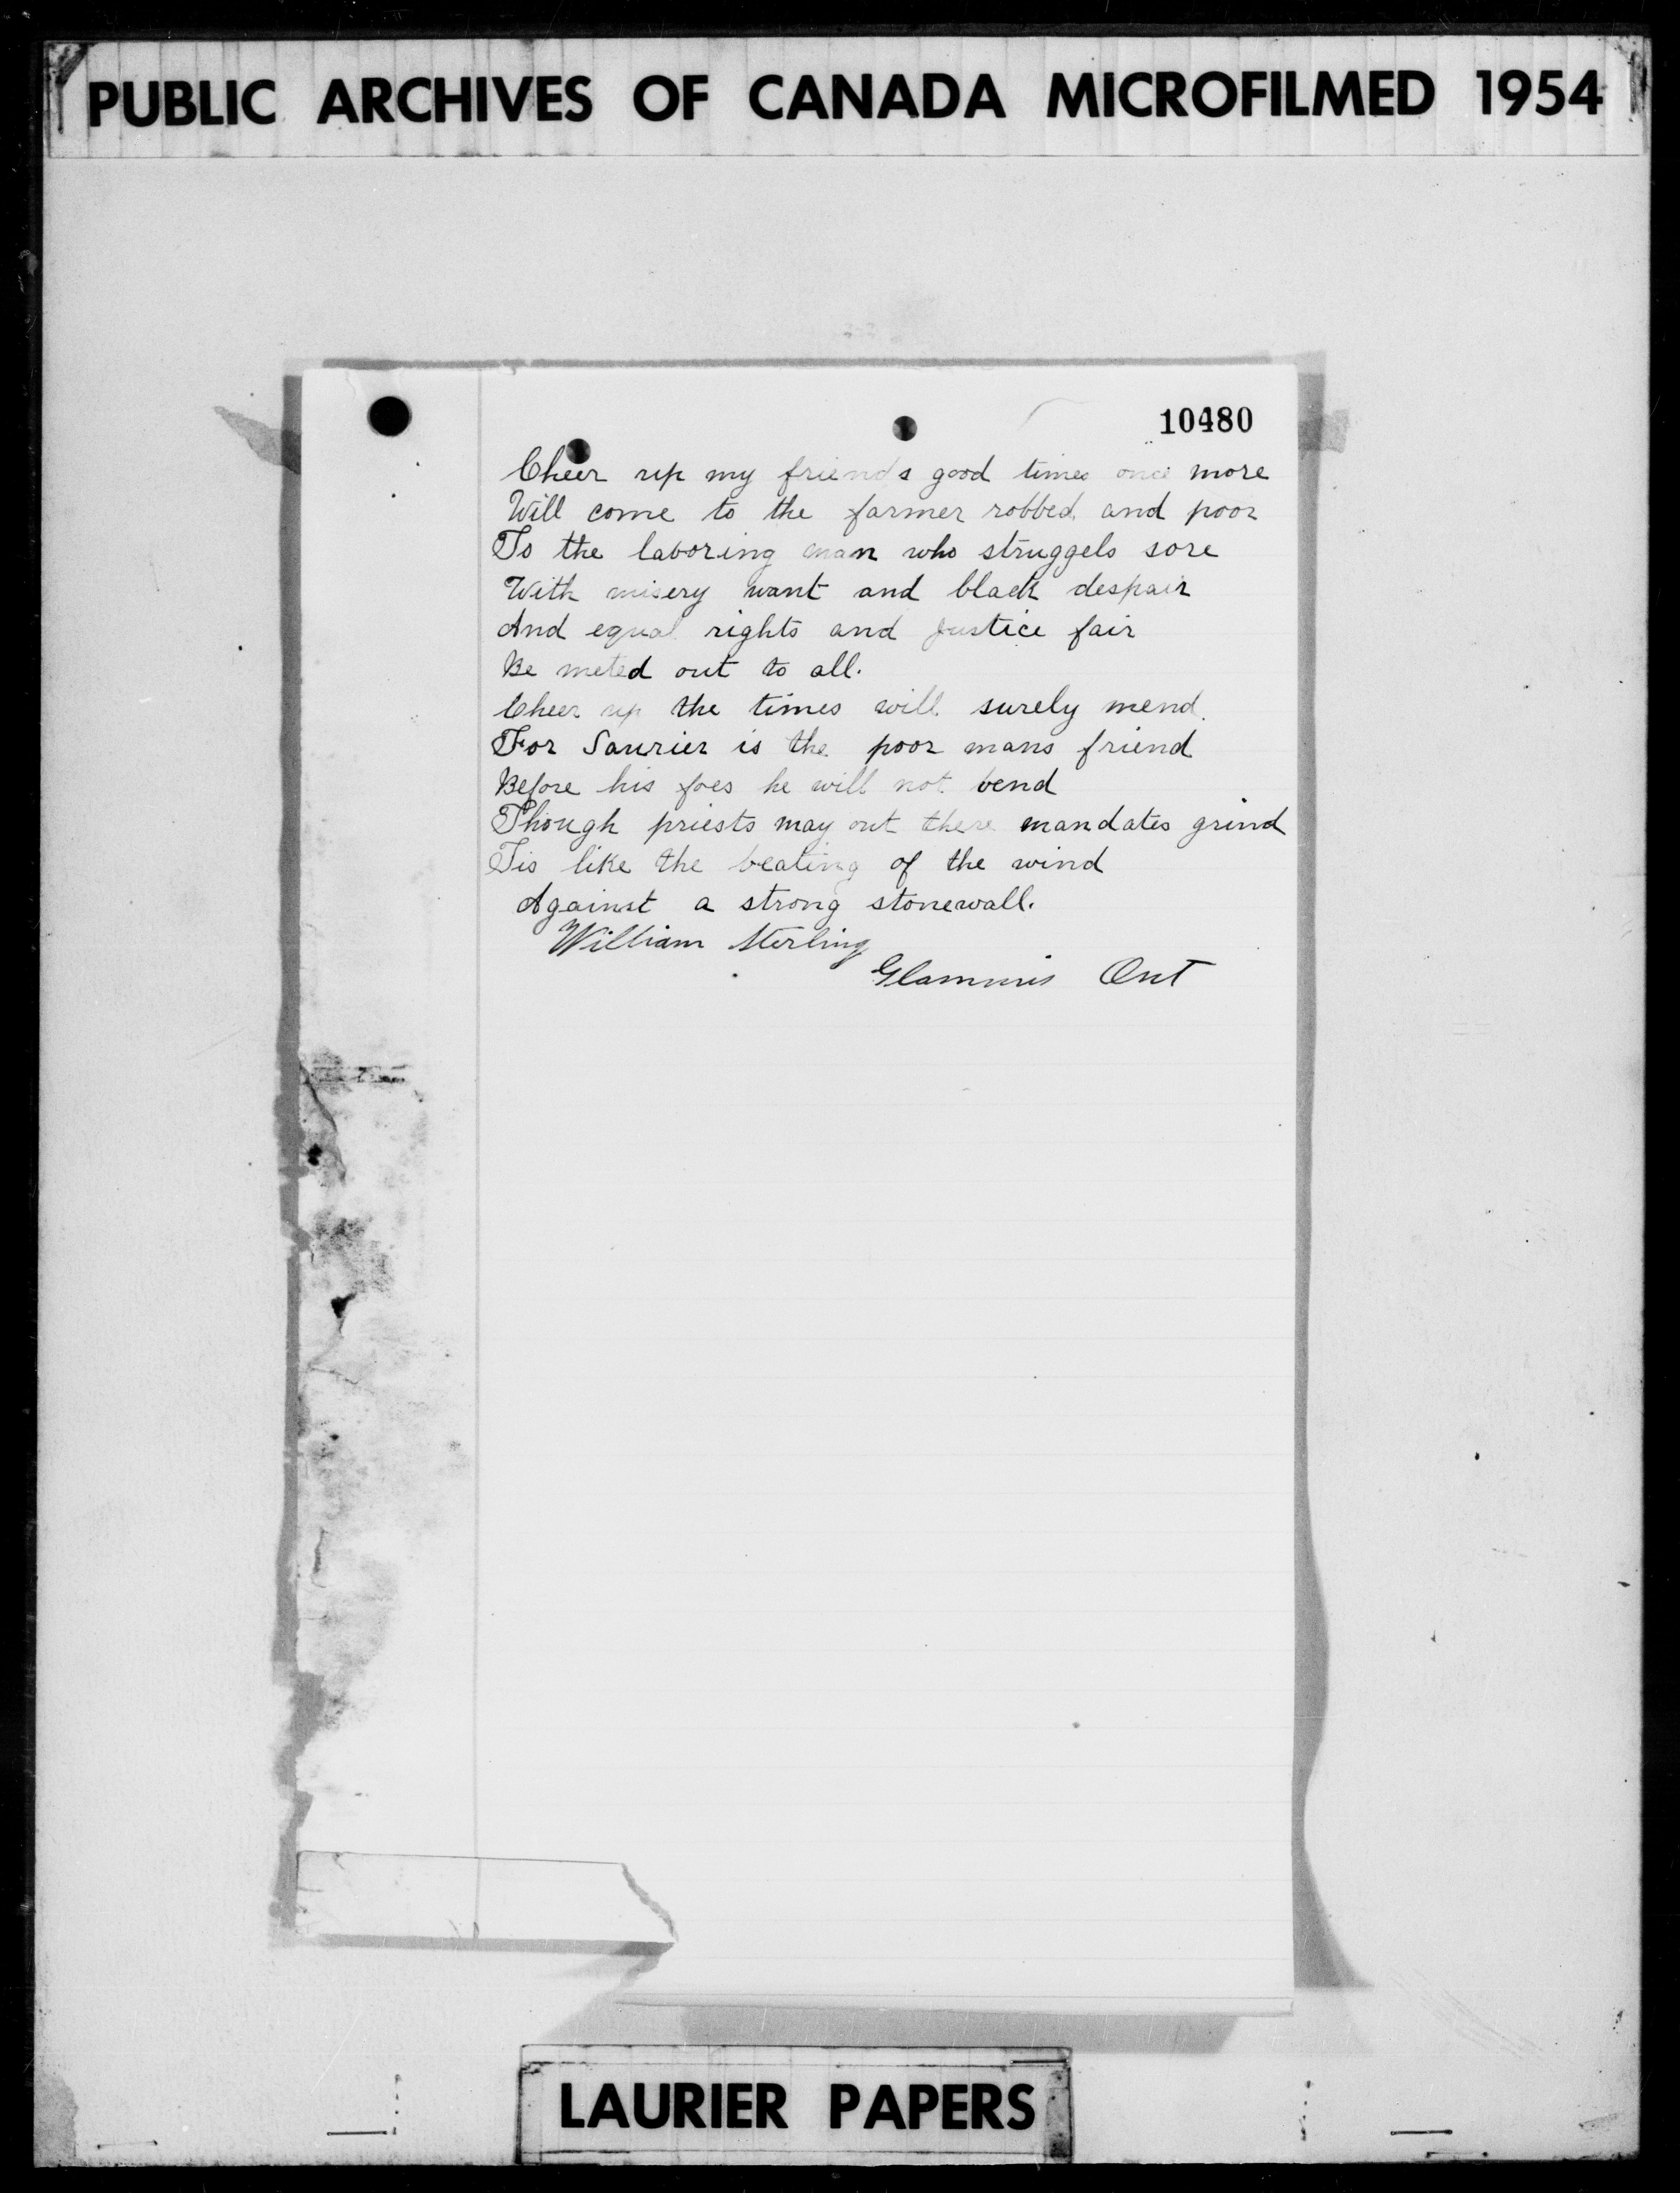 PUBLIC ARCHIVES OF CANADA MICROFILMED 1954
10480
Cheer up my friends good times once more
Will come to the farmer robbed and poor
To the laboring man who struggels sore
With misery want and black despair
And equal rights and justice fair
Be meted out to all.
Cheer up the times will surely mend.
For Laurier is the poor mans friend
Before his foes he will not bend
Though priests may out there mandates grind
Tis like the beating of the wind
Against a strong stonewall.
William Sterling
Glammis Ont
LAURIER PAPERS